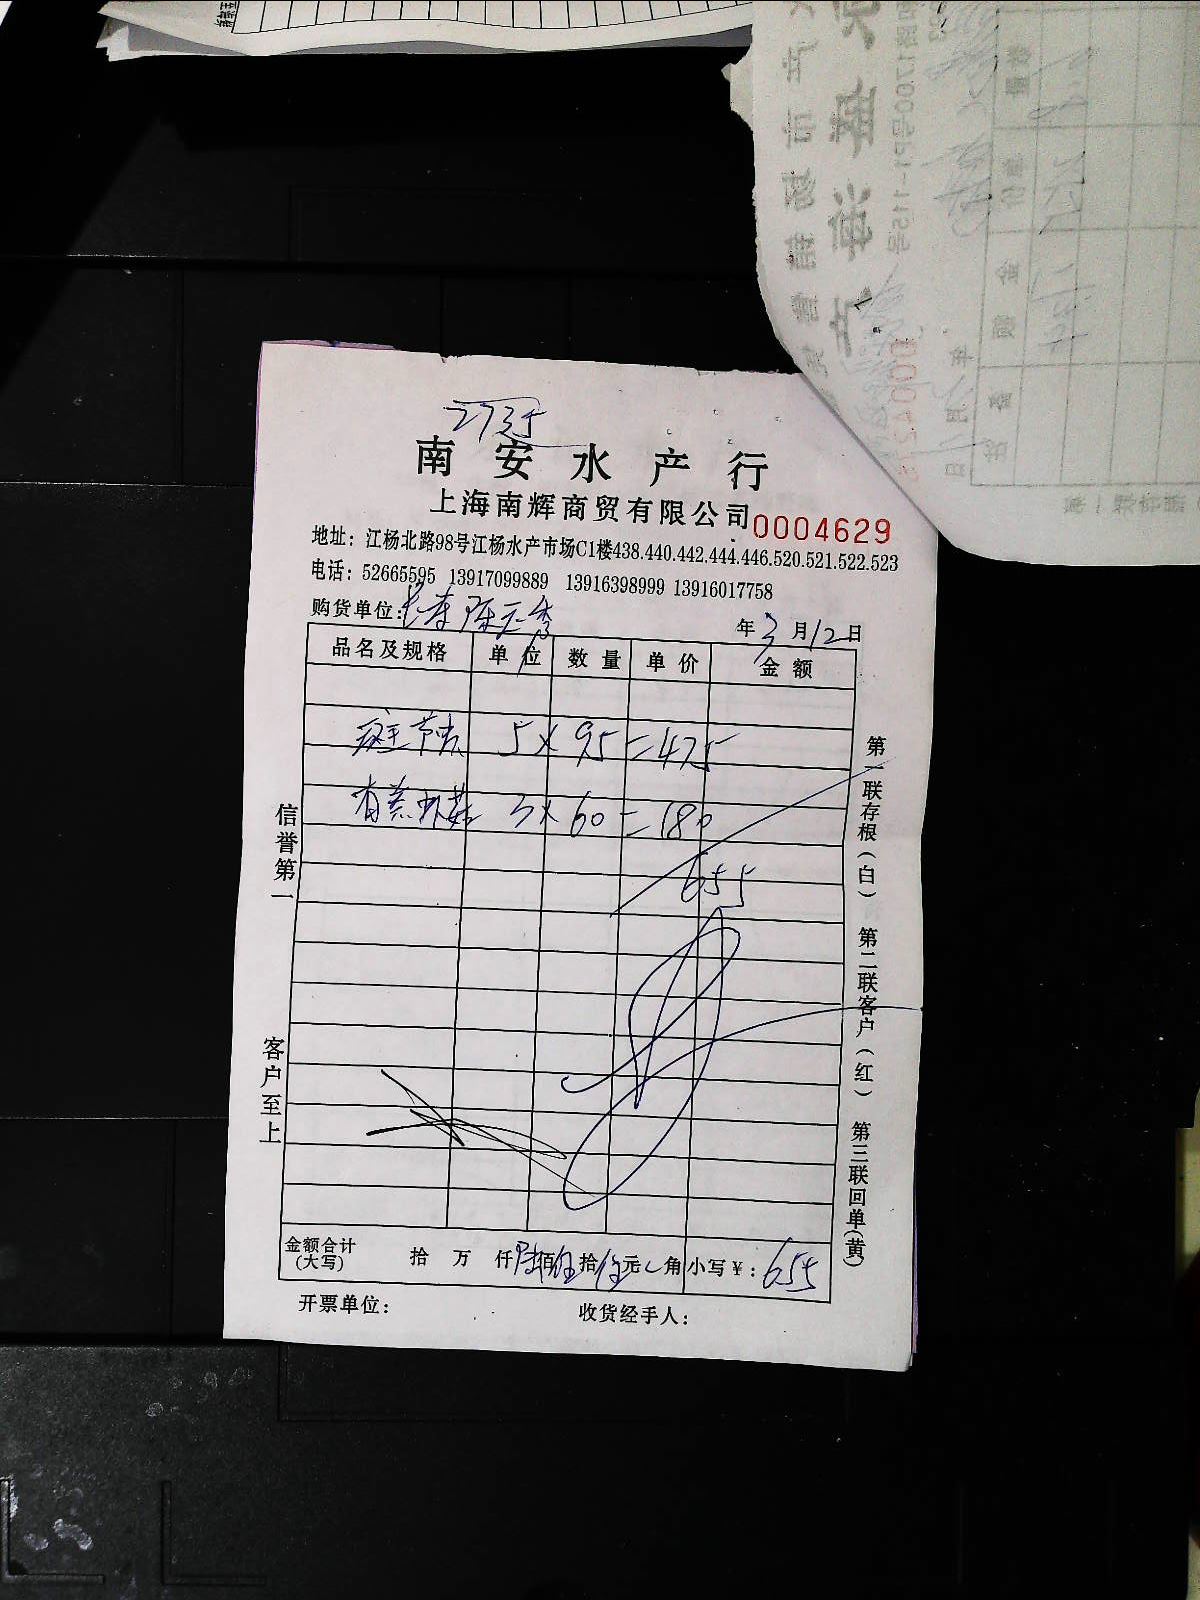 2735
南安水产行
上海南辉商贸有限公司 0004629
地址：江杨北路98号江杨水产市场C1楼438.440.442.444.446.520.521.522.523
电话：52665595 13917099889 13916398999 13916017758
购货单位：
年3月12日
品名及规格 单位 数量 单价 金额
斑节 5×95=475
虾菇 3×60=180
655
金额合计(大写) 拾 万 仟陆佰伍拾伍元 角 小写￥：655
开票单位： 收货经手人：
信誉第一
客户至上
第一联存根(白) 第二联客户(红) 第三联回单(黄)